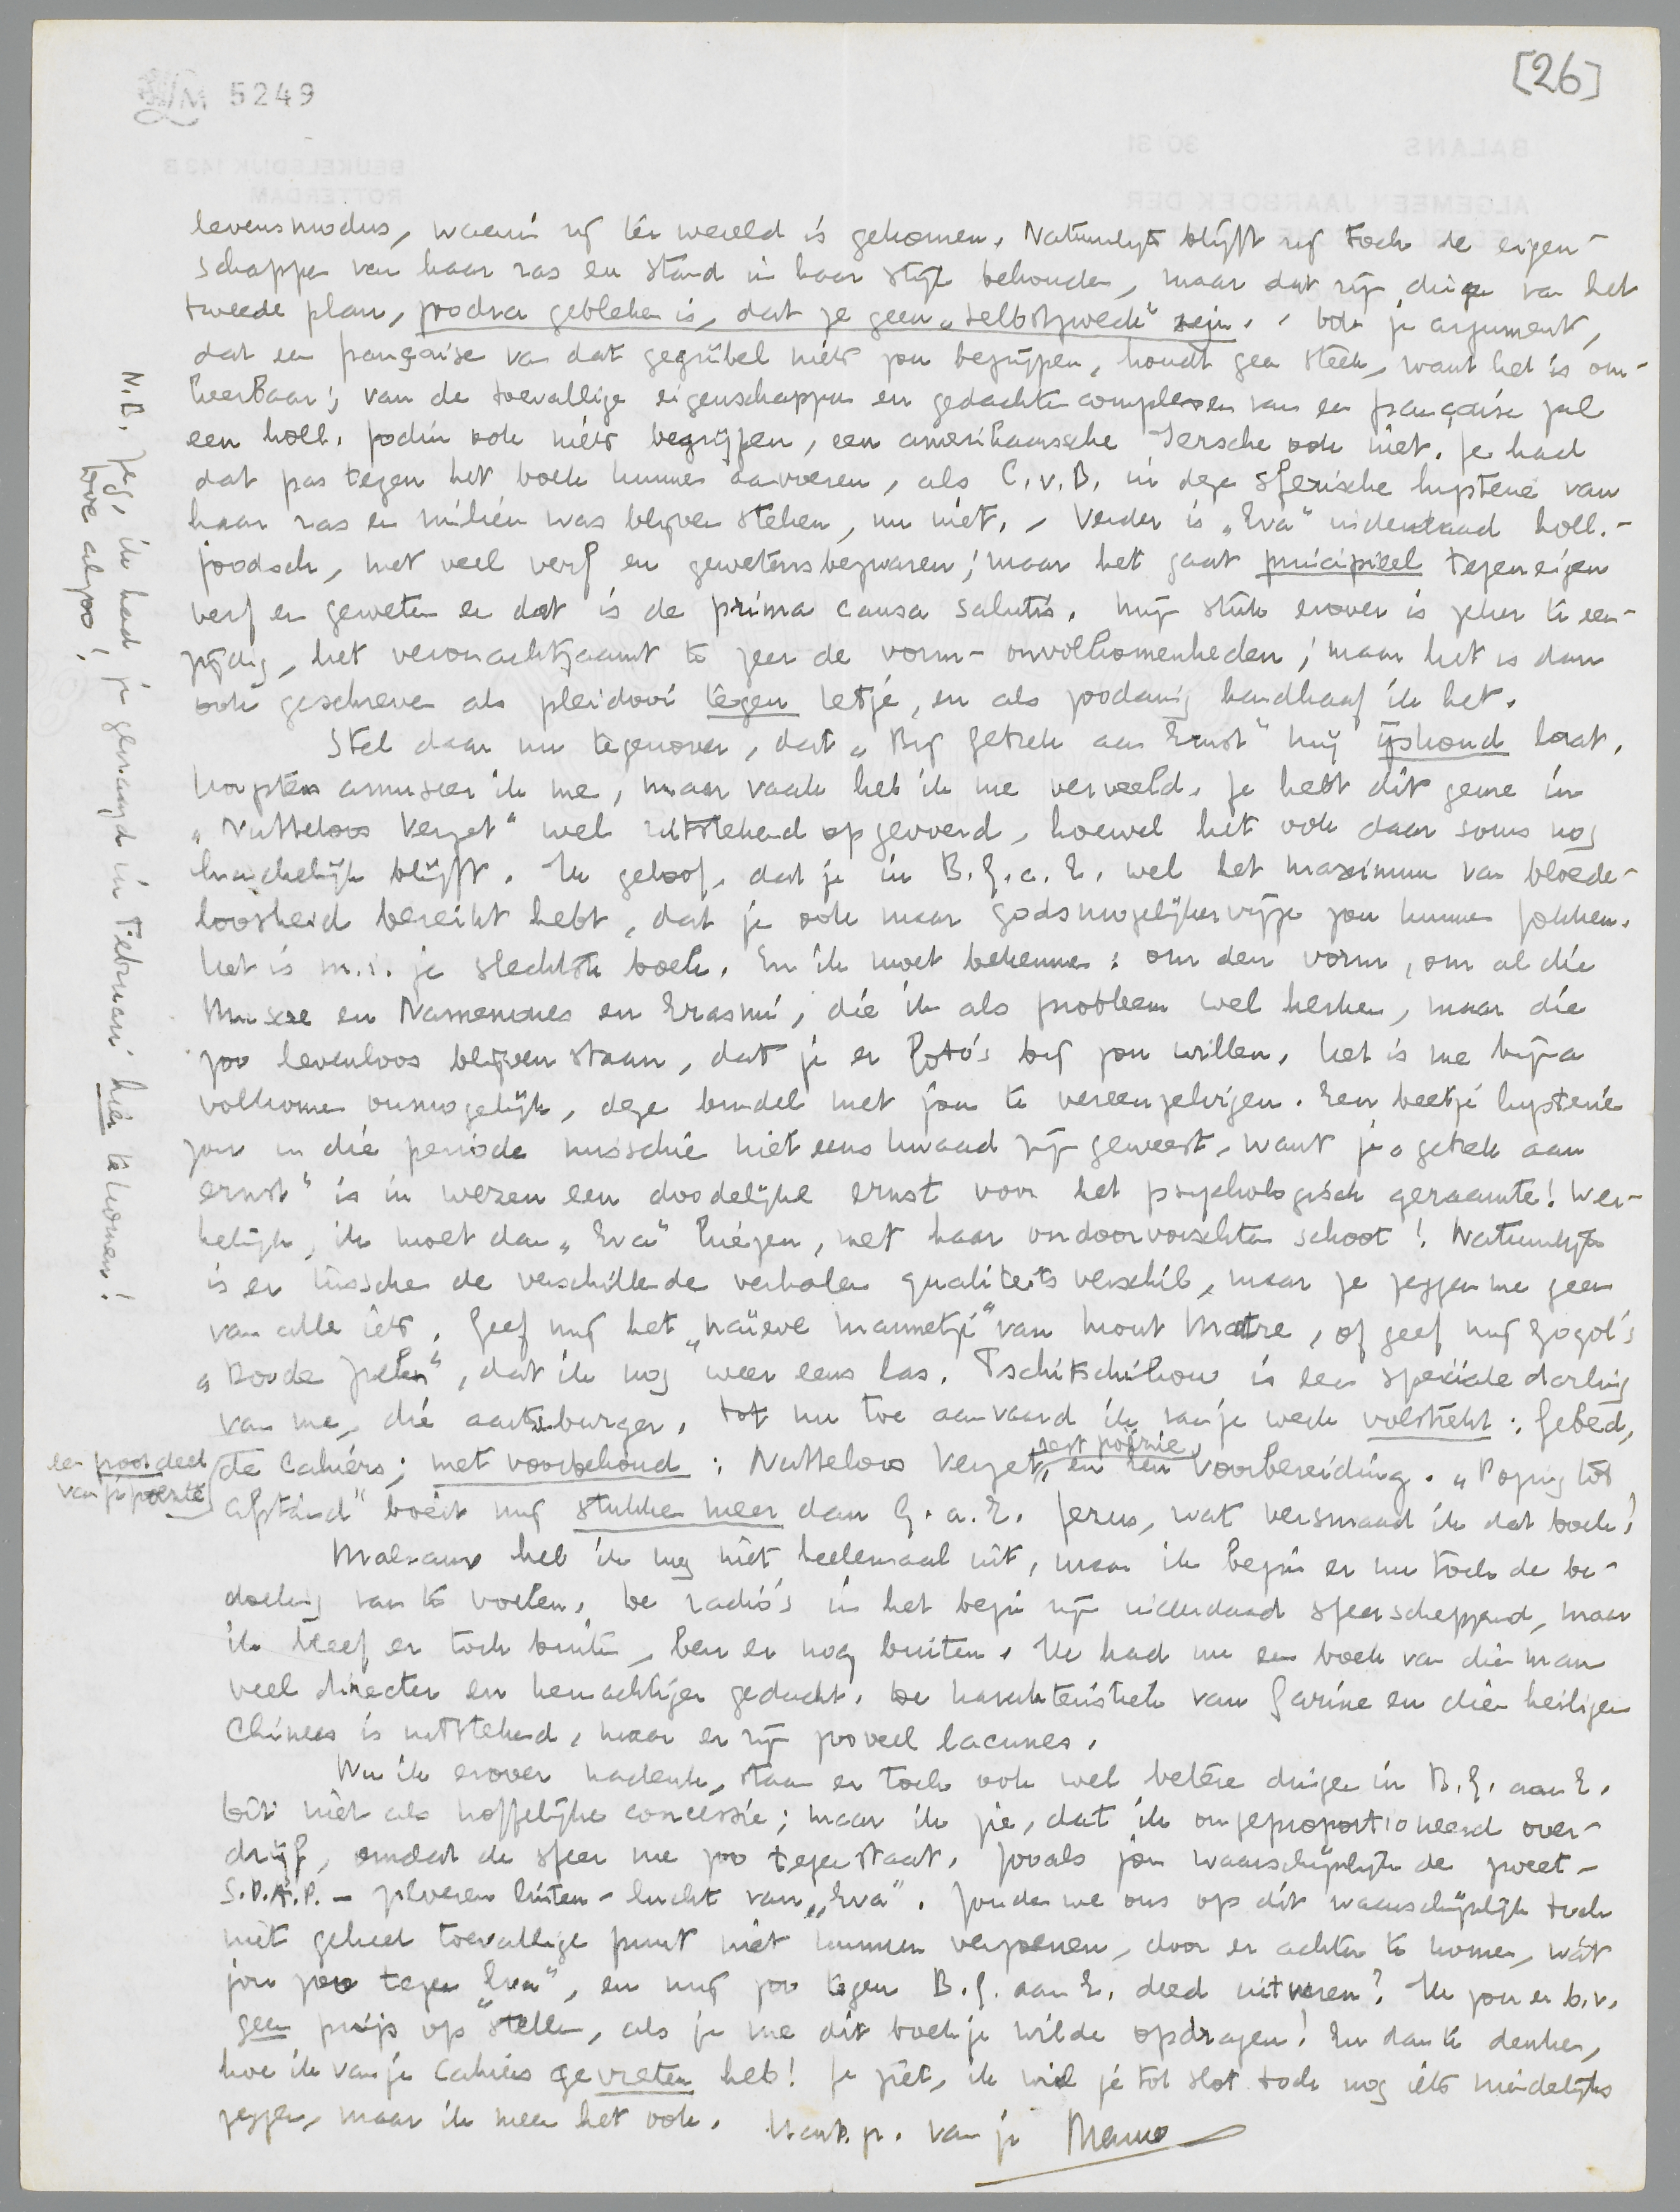 5249
[26]
BALANS 30/31
BEUKELSDIJK 143B
ROTTERDAM
ALGEMEEN JAARBOEK DER
levensmodus, waarin zij ter wereld is gekomen. Natuurlijk blijft zij toch de eigen-
schappen van haar ras en stand in haar stijl behouden, maar dat zijn dingen van het
tweede plan, zoodra gebleken is, dat ze geen „Selbstzweck" zijn. Ook je argument,
dat een française van dat gegrübel niets zou begrijpen, houdt geen steek, want het is om-
keerbaar; van de toevallige eigenschappen en gedachtencomplexen van een française zal
een holl. jodin ook niets begrijpen, een amerikaansche Iersche ook niet. Je had
dat pas tegen het boek kunnen aanvoeren, als C.v.B. in deze sferische hysterie van
haar ras en milieu was blijven steken, nu niet. – Verder is „Eva" inderdaad holl.-
joodsch, met veel verf en gewetensbezwaren; maar het gaat principieel tegen eigen
verf en geweten en dat is de prima causa salutis. Mijn stuk erover is zeker te een-
zijdig, het veronachtzaamt te zeer de vorm-onvolkomenheden; maar het is dan
ook geschreven als pleidooi tegen Jetje, en als zoodanig handhaaf ik het.
Stel daar nu tegenover, dat „Bij gebrek aan Ernst" mij ijskoud laat.
Hoogstens amuseer ik me, maar vaak heb ik me verveeld. Je hebt dit genre in
„Nutteloos Verzet" wel uitstekend opgevoerd, hoewel het ook daar soms nog
kunchelijk blijft. Ik geloof, dat je in B.G.a.E. wel het maximum van bloede-
loosheid bereikt hebt, dat je ook maar godsmogelijkerwijze zou kunnen zoeken.
Het is m.i. je slechtste boek. En ik moet bekennen: om den vorm, om al die
Musxe en Nameno's en Erasmi, die ik als probleem wel herken, maar die
zoo levenloos blijven staan, dat je er foto's bij zou willen. Het is me bijna
volkomen onmogelijk, deze bundel met jou te vereenzelvigen. Een beetje hysterie
zou in die periode misschien niet eens kwaad zijn geweest, want je „gebrek aan
ernst" is in wezen een doodelijke ernst voor het psychologisch geraamte! Wer-
kelijk, ik moet dan „Eva" kiezen, met haar ondoorvorschten schoot! Natuurlijk
is er tusschen de verschillende verhalen qualiteitsverschil, maar ze zeggen me geen
van alle iets. Geef mij het „naïeve mannetje" van Mout Matre, of geef mij Gogol's
„Doode Zielen", dat ik nog weer eens las. Tschitschikow is een speciale darling
van me, die aartsburger. Tot nu toe aanvaard ik van je werk volstrekt: Gebed,
een groot deel
van je poëzie
de Cahiers; met voorbehoud: Nutteloos Verzet, rest poëzie, en Een Voorbereiding. „Poging tot
Afstand" boeit mij stukken meer dan G.a.E. Jezus, wat versmaad ik dat boek!
Malraux heb ik nog niet heelemaal uit, maar ik begin er nu toch de be-
doeling van te voelen. De radio's in het begin zijn inderdaad sfeerscheppend, maar
ik bleef er toch buiten, ben er nog buiten. Ik had me een boek van die man
veel directer en hevigachtiger gedacht. De karakteristiek van Garine en dien heiligen
Chinees is uitstekend, maar er zijn zooveel lacunes.
Nu ik erover nadenk, staan er toch ook wel betere dingen in B.G. aan E.
Dit niet als hoffelijke concessie; maar ik zie, dat ik ongeproportioneerd over-
drijf, omdat de sfeer me zoo tegenstaat. Zooals jou waarschijnlijk de zweet-
S.D.A.P.-zilveren linten-lucht van „Eva". Zouden we ons op dit waarschijnlijk toch
niet geheel toevallige punt niet kunnen verzoenen, door er achter te komen, wát
jou zoo tegen „Eva", en mij zoo tegen B.G. aan E. deed uitvaren? Ik zou er b.v.
geen prijs op stellen, als je me dit boekje wilde opdragen! En dan te denken,
hoe ik van je Cahiers gevreten heb! Je ziet, ik wil je tot slot toch nog iets vriendelijks
zeggen, maar ik meen het ook. Hart. gr. van je Menno
N.B. Zeg, ik had je gevraagd in Februari hier te komen!
Doe alzoo!